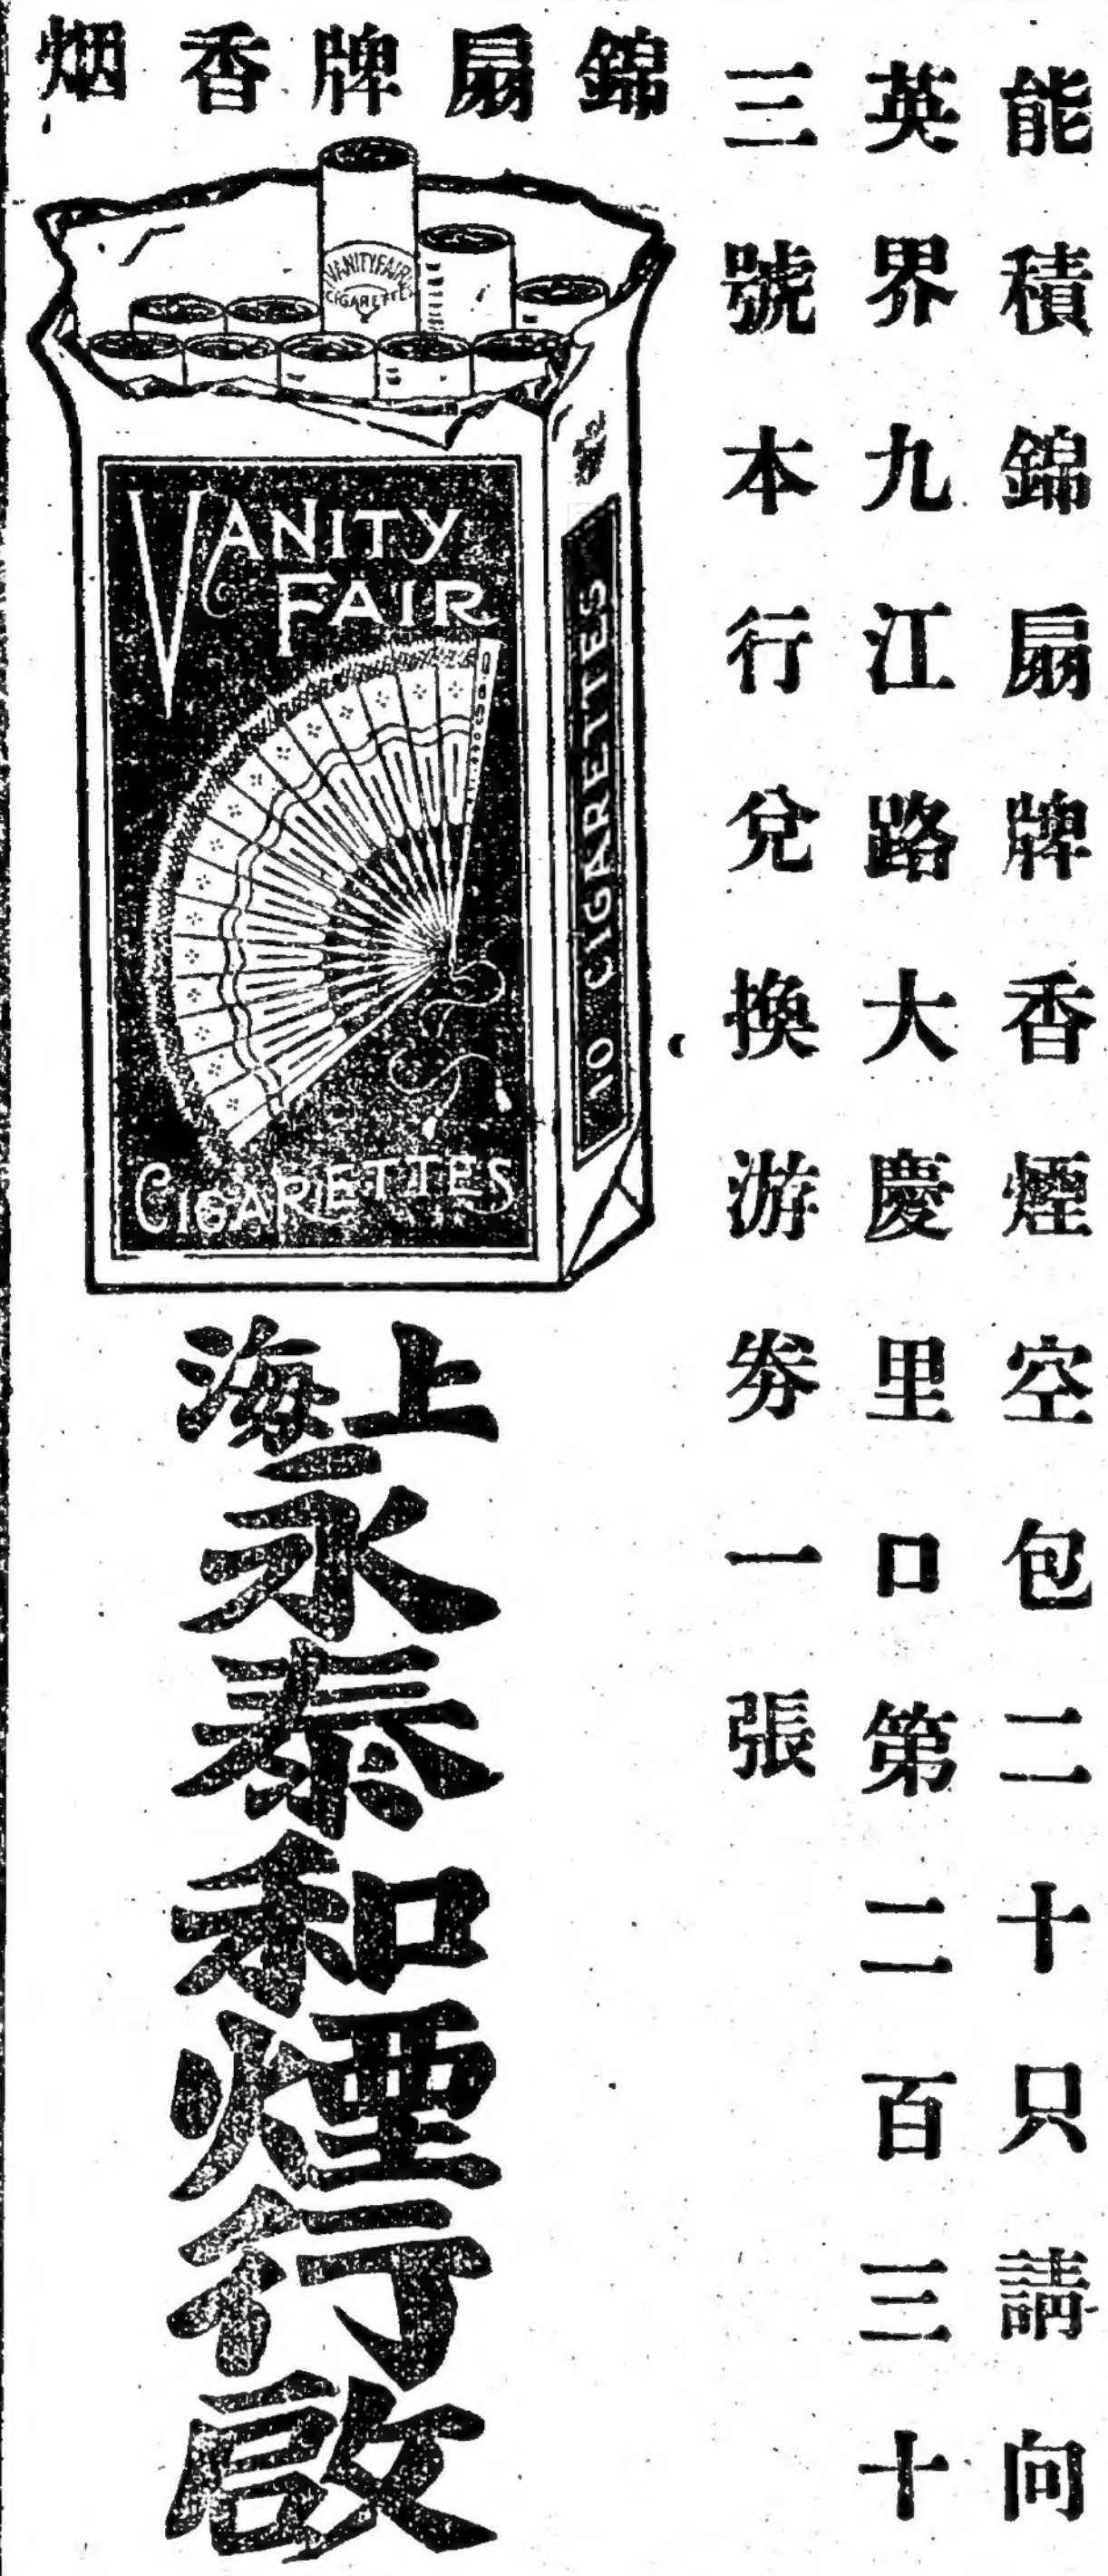 能積錦扇牌香煙空包二十只請向
英界九江路大慶里口第二百三十
三號本行兌換游劵一張
錦扇牌香烟
VANITY FAIR
CIGARETTES
VANITY
FAIR
CIGARETTES
10 CIGARETTES
上海永泰和煙行啟